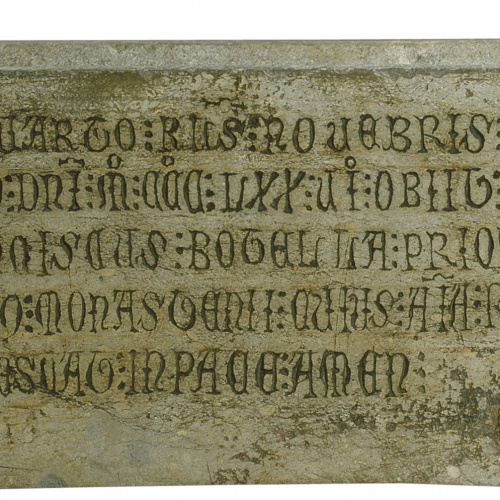 UARTO : KLS : NOVEBRIS :
O : DNI : M : CCC : LXX : VI : OBIIT :
NCISCUS : BOTELLA : PRIO
O : MONASTERII : CUIUS : AIA :
ESCAT : IN PACE : AMEN :